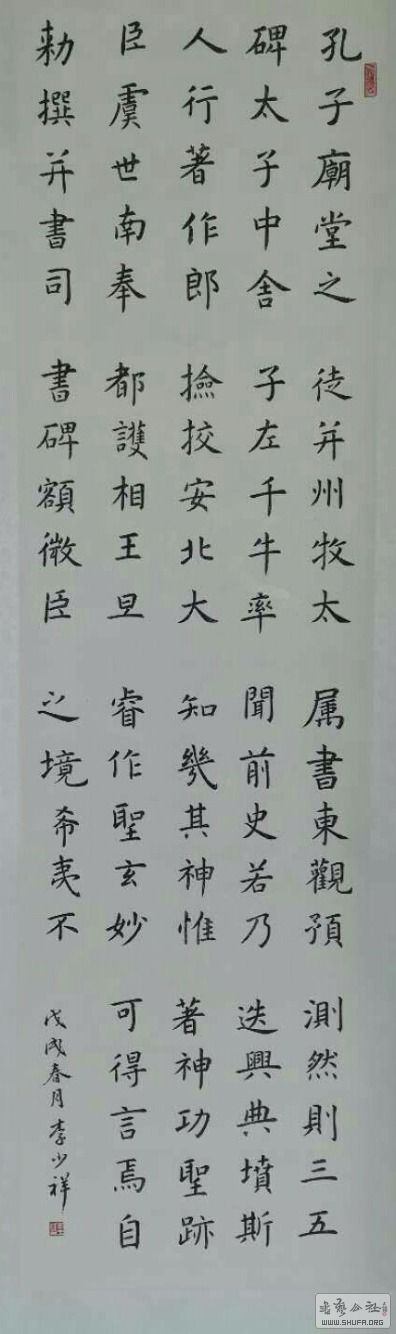 孔子廟堂之
碑太子中舍
人行著作郎
臣虞世南奉
勑撰并書司
徒并州牧太
子左千牛率
撿挍安北大
都護相王旦
書碑額微臣
属書東觀預
聞前史若乃
知幾其神惟
睿作聖玄妙
之境希夷不
測然則三五
迭興典墳斯
著神功聖跡
可得言焉自
戊戌春月李少祥
WWW.SHUFA.ORG